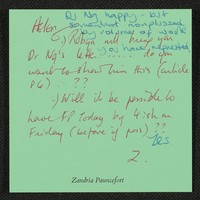 Dr Ng happy - bit
Helen, somewhat nonplussed
by volume of work
:-) Robyn will bring you
you have requested
Dr Ng's lette...... do you
want to show him this (article
PG) . ??
:-) Will it be possible to
have FP today by 4ish on
Friday (before if poss) ??
Yes
Z.
Zandria Pauncefort